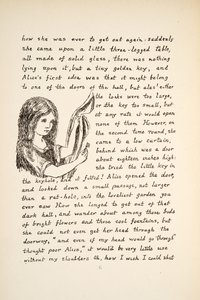 how she was ever to get out again. suddenly
she came upon a little three-legged table,
all made of solid glass, there was nothing
lying upon it, but a tiny golden key, and
Alice's first idea was that it might belong
to one of the doors of the hall, but alas! either
the locks were too large,
or the key too small, but
at any rate it would open
none of them. However, on
the second time round, she
came to a low curtain,
behind which was a door
about eighteen inches high:
she tried the little key in
the keyhole, and it fitted! Alice opened the door,
and looked down a small passage, not larger
than a rat-hole, into the loveliest garden you
ever saw. How she longed to get out of that
dark hall, and wander about among those beds
of bright flowers and those cool fountains, but
she could not even get her head through the
doorway, "and even if my head would go through"
thought poor Alice, "it would be very little use
without my shoulders. Oh, how I wish I could shut